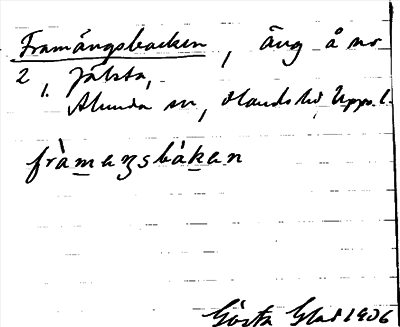 Framängsbacken, äng å nr
2, Jälsta,
Alunda sn, Olands hd, Upps. l.
fràmaŋsbákan
Gösta Glad 1906